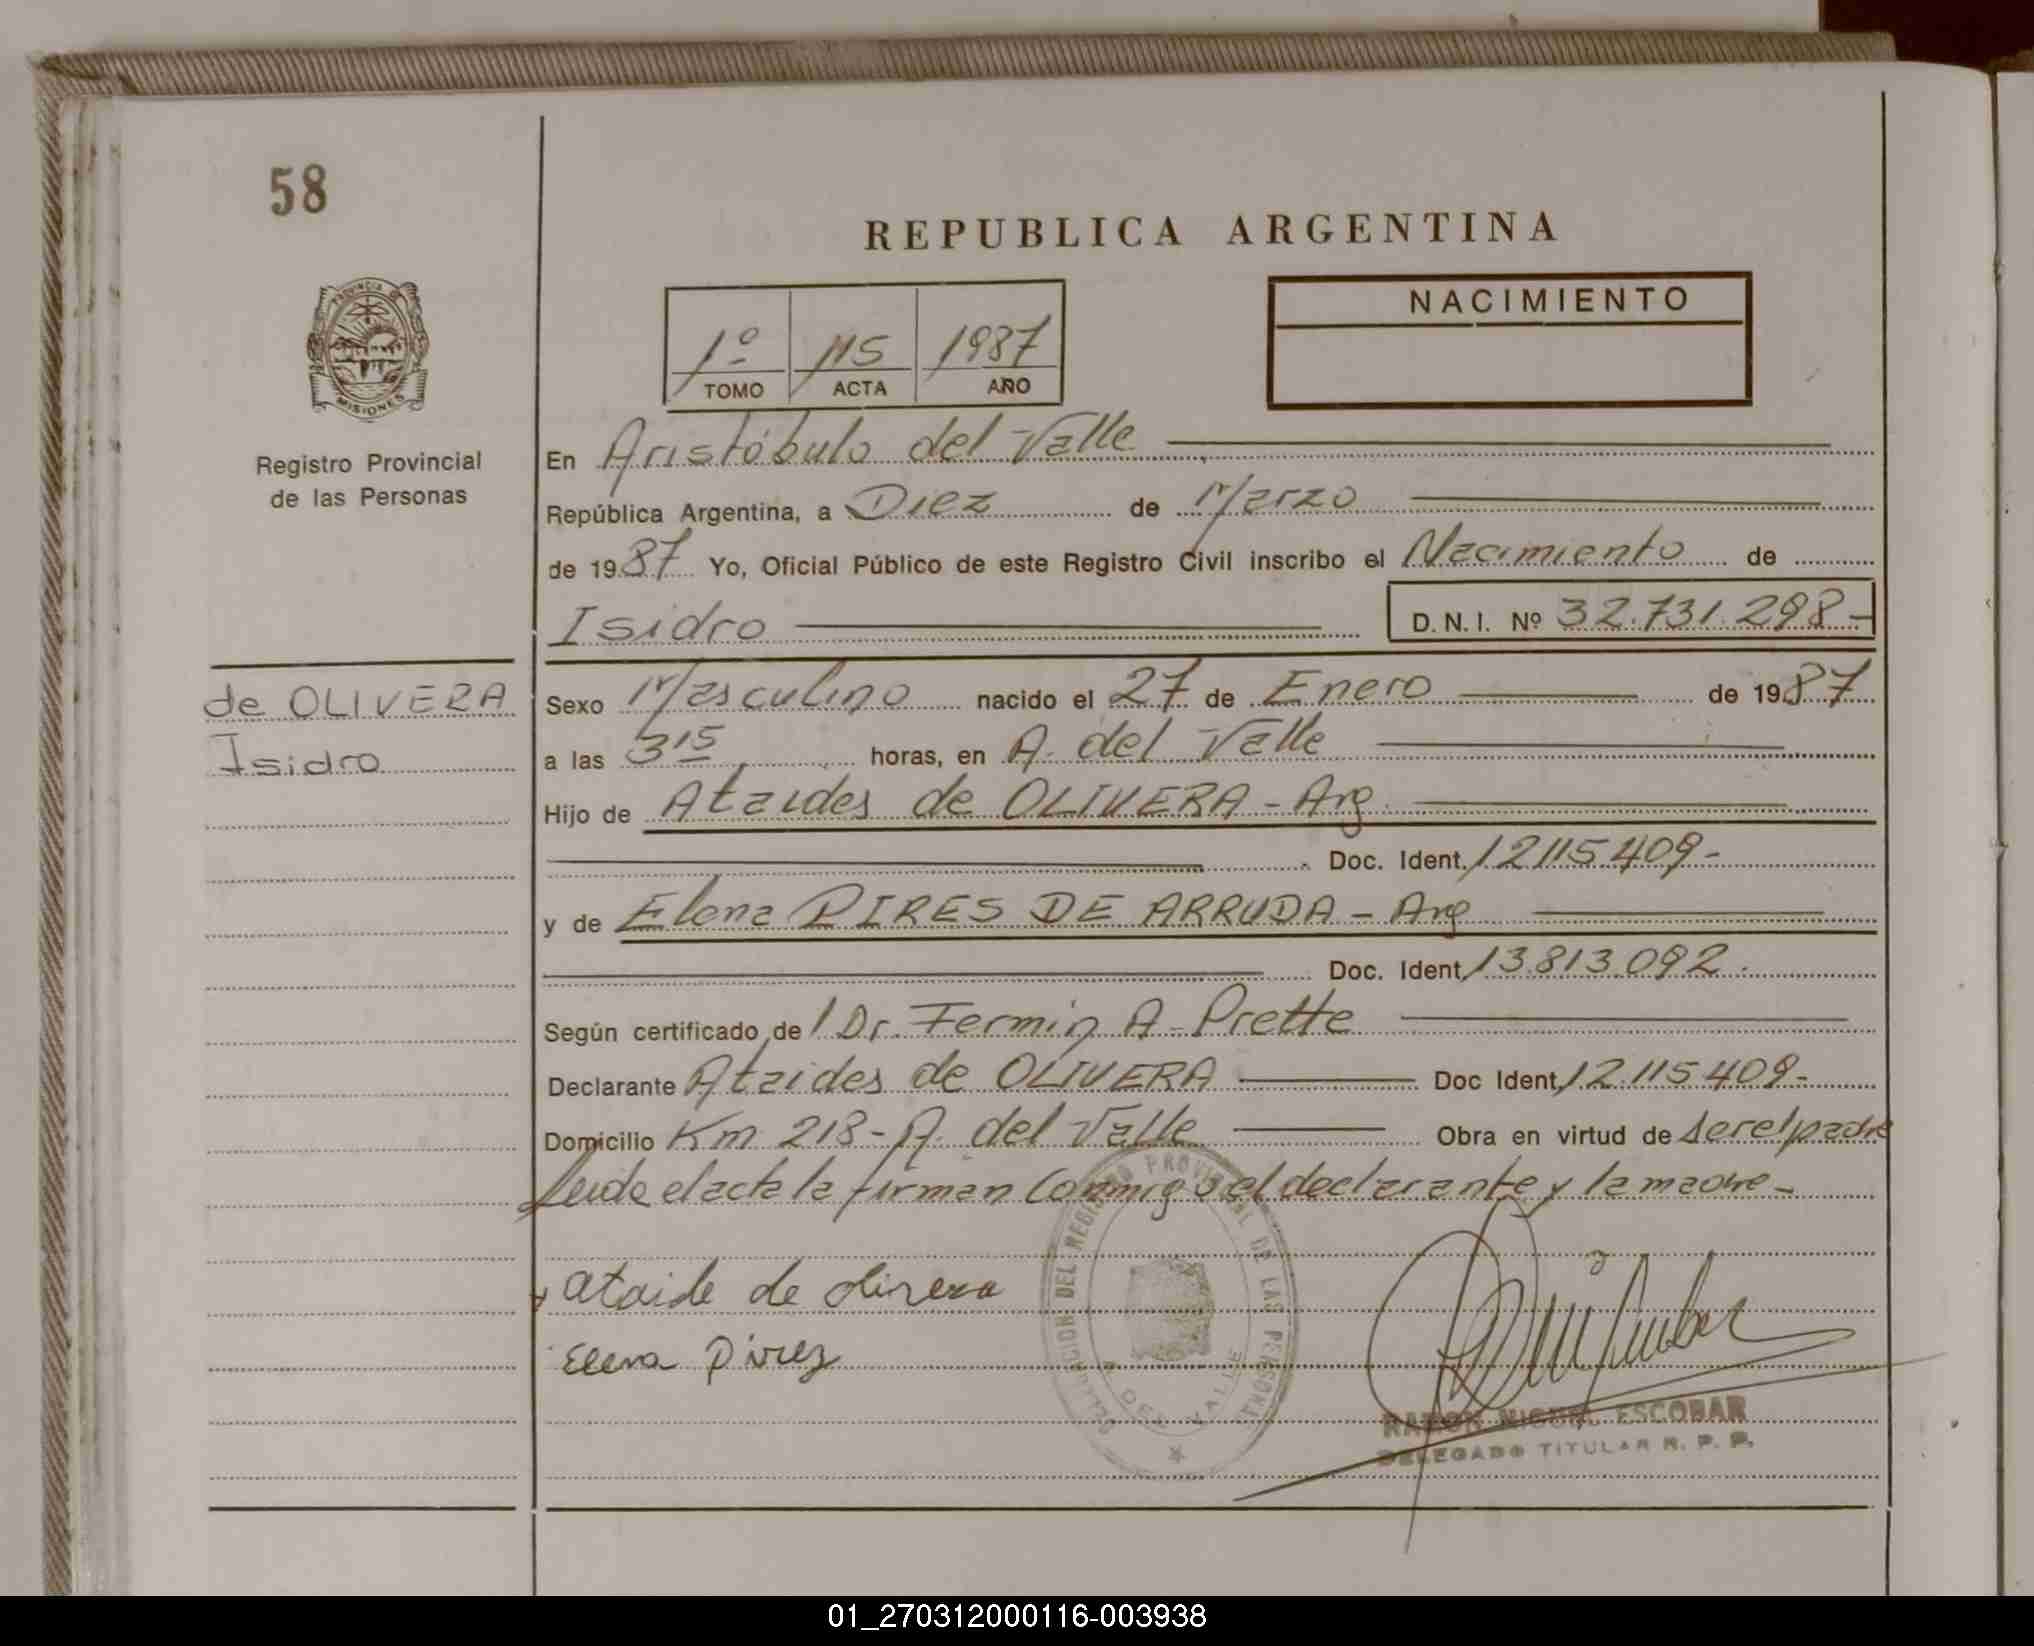 58
REPUBLICA ARGENTINA
PROVINCIA DE
MISIONES
Registro Provincial
de las Personas
NACIMIENTO
1º 115 1987
TOMO ACTA AÑO
En Aristóbulo del Valle
República Argentina, a Diez de Marzo
de 1987 Yo, Oficial Público de este Registro Civil inscribo el Nacimiento de
Isidro D.N.I. Nº 32.731.298-
de OLIVERA
Isidro
Sexo Masculino nacido el 27 de Enero de 1987
a las 3 15 horas, en A. del Valle
Hijo de Ataides de OLIVERA - Arg.
Doc. Ident. 12115409-
y de Elena PIRES DE ARRUDA - Arg
Doc. Ident. 13.813.092.
Según certificado de l Dr. Fermin A. Prette
Declarante Ataides de OLIVERA Doc Ident. 12.115409-
Domicilio Km 218 - A. del Valle Obra en virtud de ser el padre
Leida el acta la firman conmigo el declarante y la madre-
Ataide de Olivera
Elena Pirez
DELEGACION DEL REGISTRO PROVINCIAL DE LAS PERSONAS
A. DEL VALLE
RAMON MIGUEL ESCOBAR
DELEGADO TITULAR R. P. P.
01_270312000116-003938